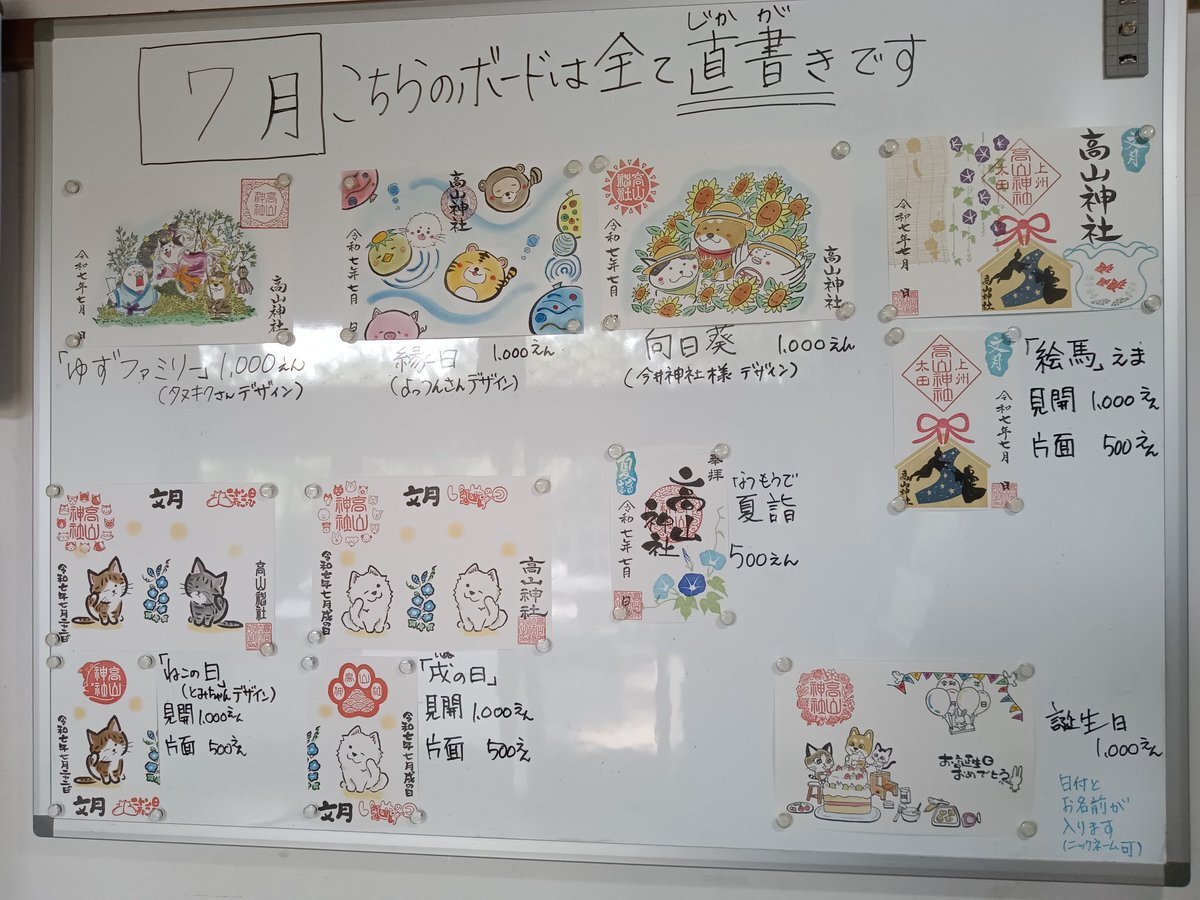 じかがき
7月 こちらのボードは全て直書きです
高山神社
令和七年七月 日
高山神社
「ゆずファミリー」1,000えん
(タヌキクさんデザイン)
高山神社
令和七年七月 日
縁日 1,000えん
(よっつんさんデザイン)
高山神社
令和七年七月 日
高山神社
向日葵 1,000えん
(今井神社様 デザイン)
文月
高山神社
上州
高山神社
太田
令和七年七月 日
高山神社
文月
上州
高山神社
太田
令和七年七月 日
高山神社
「絵馬」えま
見開 1,000えん
片面 500えん
文月
高山神社
令和七年七月二十二日
高山神社
文月
高山神社
令和七年七月戌の日
高山神社
奉拝
夏詣
高山神社
令和七年七月 日
なつもうで
夏詣
500えん
高山神社
令和七年七月二十二日
文月
「ねこの日」
(とみちゃんデザイン)
見開 1,000えん
片面 500えん
令和七年七月戌の日
文月
いぬ
「戌の日」
見開 1,000えん
片面 500えん
高山神社
令和
お誕生日
おめでとう
誕生日
1,000えん
日付と
お名前が
入ります
(ニックネーム可)